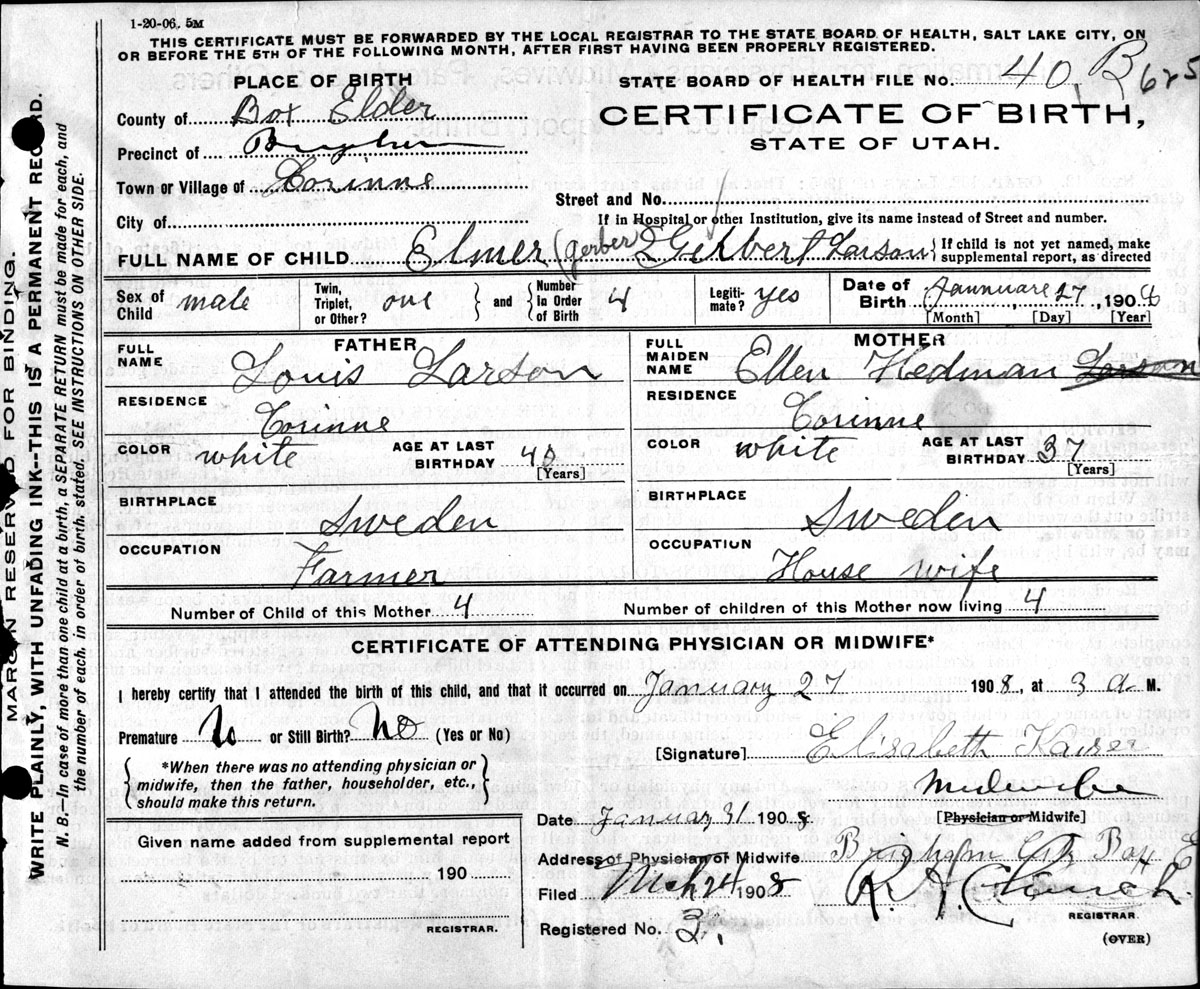 1-20-06. 5M
THIS CERTIFICATE MUST BE FORWARDED BY THE LOCAL REGISTRAR TO THE STATE BOARD OF HEALTH, SALT LAKE CITY, ON
OR BEFORE THE 5TH OF THE FOLLOWING MONTH, AFTER FIRST HAVING BEEN PROPERLY REGISTERED.
PLACE OF BIRTH
County of Box Elder
Precinct of
Town or Village of Corinne
City of
STATE BOARD OF HEALTH FILE NO. 40 B625
CERTIFICATE OF BIRTH,
STATE OF UTAH.
Street and No.
If in Hospital or other Institution, give its name instead of Street and number.
FULL NAME OF CHILD Elmer (Gerber) Gilbert Larson { If child is not yet named, make
supplemental report, as directed
Sex of Child male
Twin, Triplet, or Other? one } and { Number In Order of Birth 4
Legiti-mate? yes
Date of Birth Januuare 27, 1908
[Month] [Day] [Year]
FATHER
FULL NAME Louis Larson
RESIDENCE
Corinne
COLOR white AGE AT LAST BIRTHDAY 40
[Years]
BIRTHPLACE
Sweden
OCCUPATION
Farmer
MOTHER
FULL MAIDEN NAME Ellen Hedman Larson
RESIDENCE
Corinne
COLOR white AGE AT LAST BIRTHDAY 37
[Years]
BIRTHPLACE
Sweden
OCCUPATION
House wife
Number of Child of this Mother 4 Number of children of this Mother now living 4
CERTIFICATE OF ATTENDING PHYSICIAN OR MIDWIFE*
I hereby certify that I attended the birth of this child, and that it occurred on January 27 1908, at 3 a M.
Premature No or Still Birth? No (Yes or No)
[Signature] Elisabeth Kaiser
Midwife
[Physician or Midwife]
{ *When there was no attending physician or
midwife, then the father, householder, etc.,
should make this return. }
Given name added from supplemental report
190
REGISTRAR.
Date January 31 1908
Address of Physician or Midwife Brigham City Box E
Filed Mch 24 1908
REGISTRAR.
Registered No. 3.
(OVER)
MARGIN RESERVED FOR BINDING.
WRITE PLAINLY, WITH UNFADING INK--THIS IS A PERMANENT RECORD.
N. B.--In case of more than one child at a birth, a SEPARATE RETURN must be made for each, and
the number of each, in order of birth, stated. SEE INSTRUCTIONS ON OTHER SIDE.